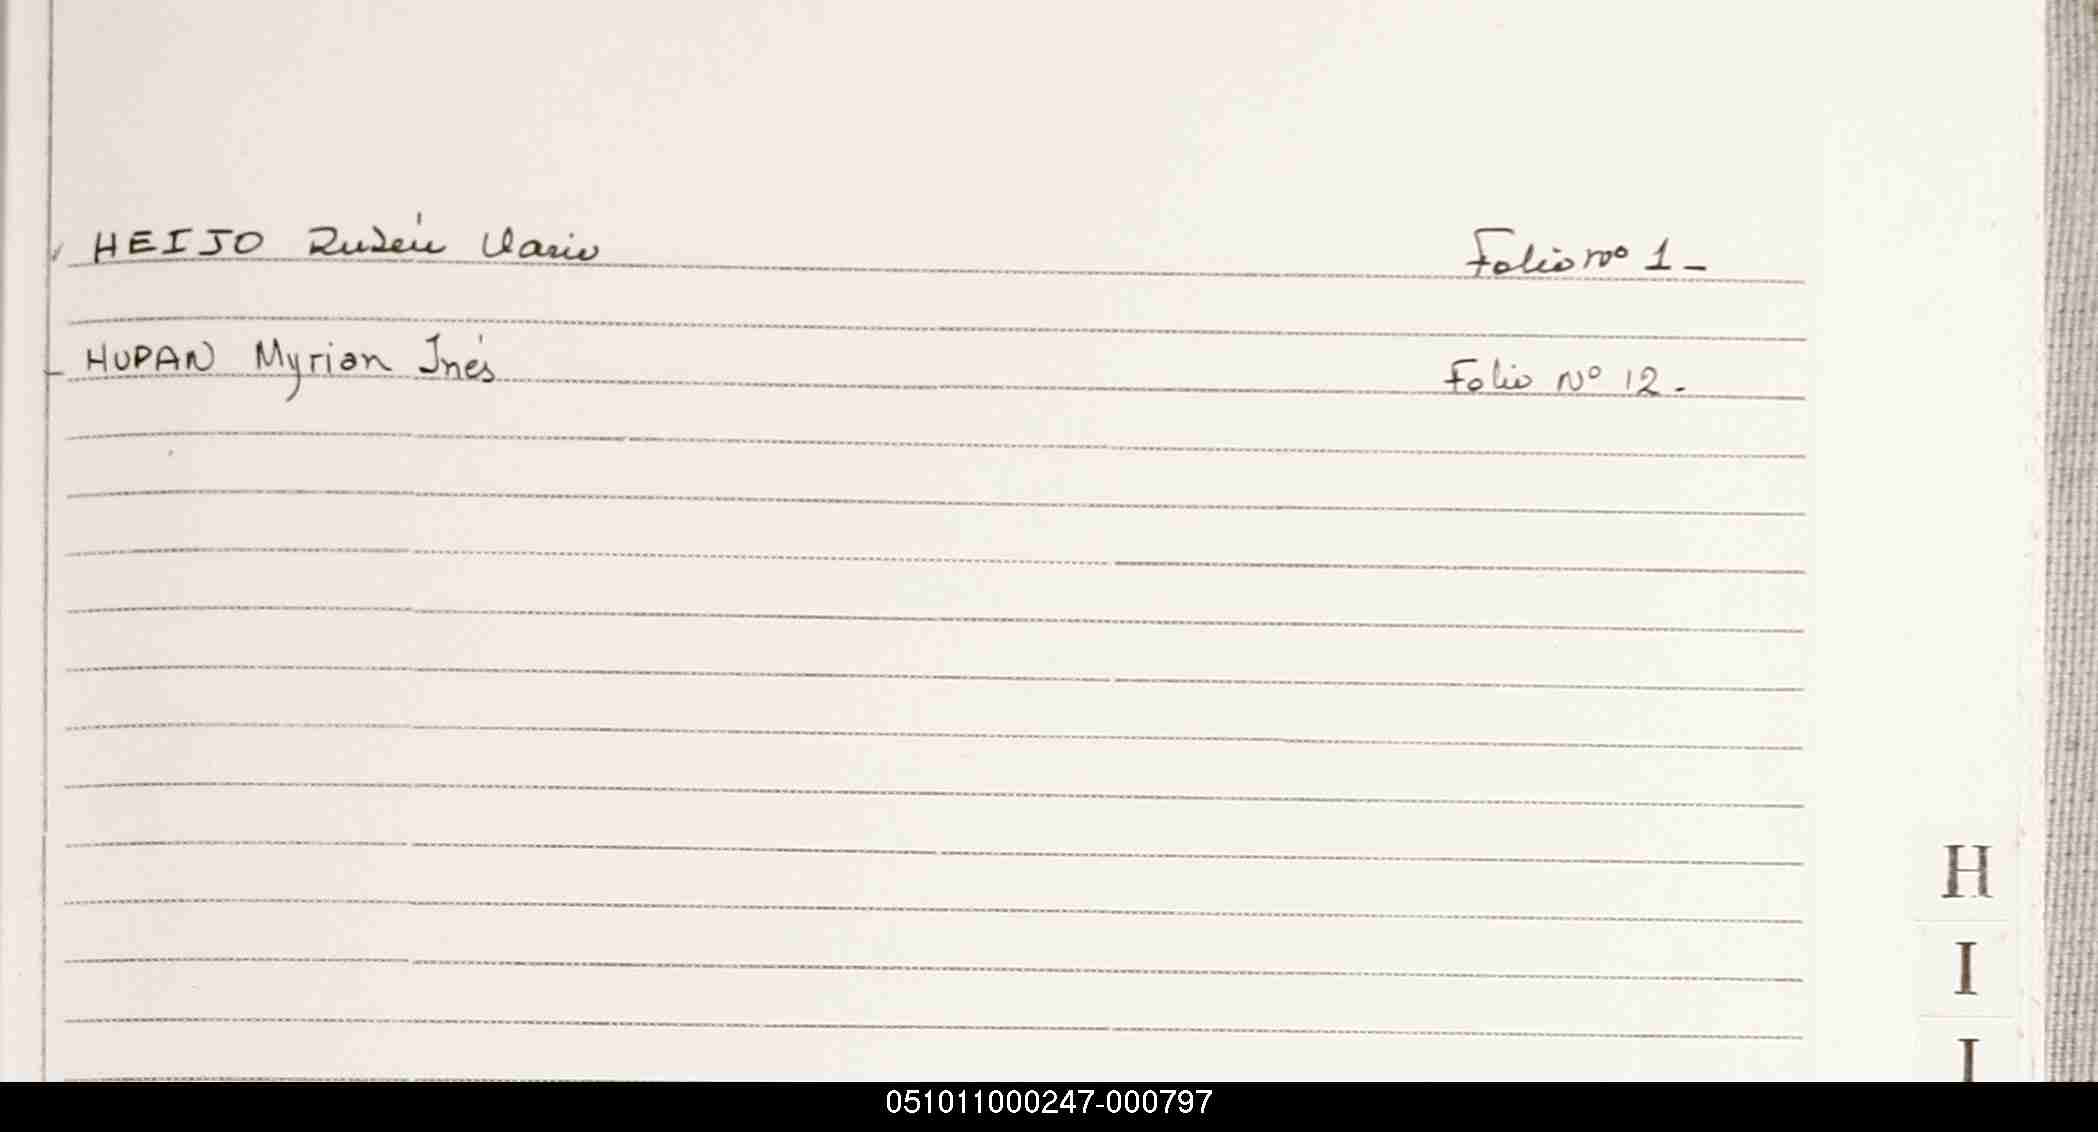 HEIJO Rubén Mario Folio nº 1-
HUPAN Myrian Inés Folio Nº 12.-
H
I
J
051011000247-000797